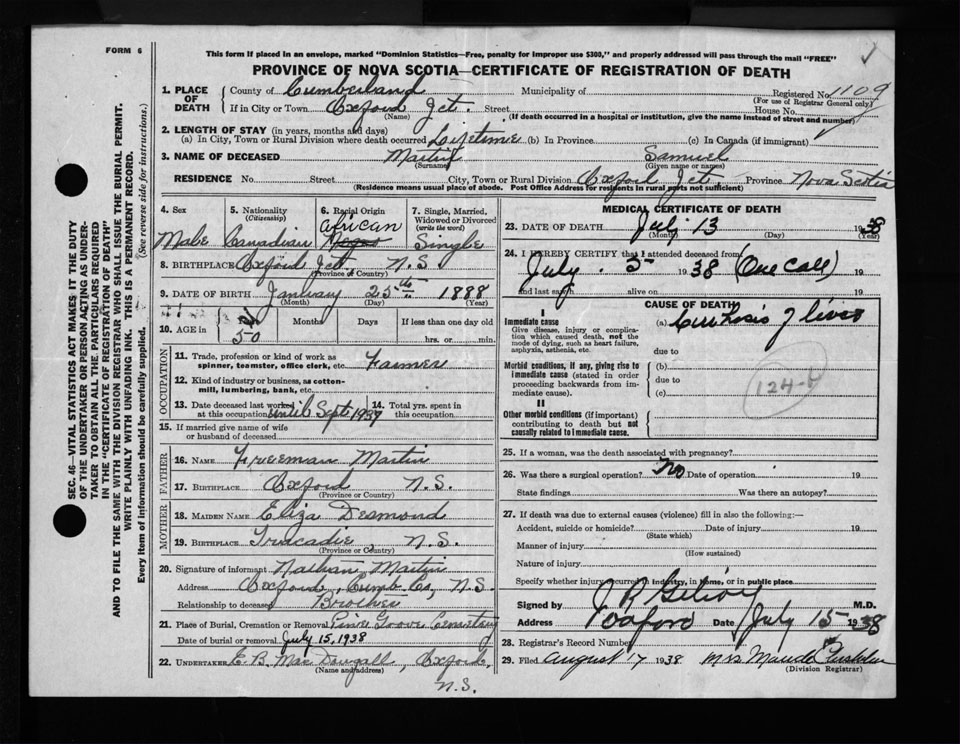 FORM 6
This form if placed in an envelope, marked "Dominion Statistics—Free, penalty for improper use $300," and properly addressed will pass through the mail "FREE"
PROVINCE OF NOVA SCOTIA—CERTIFICATE OF REGISTRATION OF DEATH
SEC. 46—VITAL STATISTICS ACT MAKES IT THE DUTY
OF THE UNDERTAKER OR PERSON ACTING AS UNDER-
TAKER TO OBTAIN ALL THE PARTICULARS REQUIRED
IN THE "CERTIFICATE OF REGISTRATION OF DEATH"
AND TO FILE THE SAME WITH THE DIVISION REGISTRAR WHO SHALL ISSUE THE BURIAL PERMIT.
WRITE PLAINLY WITH UNFADING INK. THIS IS A PERMANENT RECORD.
Every item of information should be carefully supplied. (See reverse side for instructions.)
1. PLACE OF DEATH County of Cumberland Municipality of Registered No. 1109
(For use of Registrar General only)
If in City or Town Oxford Jct. Street House No.
(Name) (If death occurred in a hospital or institution, give the name instead of street and number)
2. LENGTH OF STAY (in years, months and days)
(a) In City, Town or Rural Division where death occurred Lifetime (b) In Province (c) In Canada (if immigrant)
3. NAME OF DECEASED Martin Samuel
(Surname) (Given name or names)
RESIDENCE No. Street City, Town or Rural Division Oxford Jct. Province Nova Scotia
(Residence means usual place of abode. Post Office Address for residents in rural parts not sufficient)
4. Sex Male
5. Nationality (Citizenship) Canadian
6. Racial Origin African Negro
7. Single, Married, Widowed or Divorced (write the word) Single
8. BIRTHPLACE Oxford Jct. N.S.
(Province or Country)
9. DATE OF BIRTH January 25th 1888
(Month) (Day) (Year)
10. AGE in 50 Months Days If less than one day old
hrs. or min.
OCCUPATION
11. Trade, profession or kind of work as
spinner, teamster, office clerk, etc. Farmer
12. Kind of industry or business, as cotton-
mill, lumbering, bank, etc.
13. Date deceased last worked at this occupation until Sept 1937
14. Total yrs. spent in this occupation
15. If married give name of wife
or husband of deceased
FATHER
16. NAME Freeman Martin
17. BIRTHPLACE Oxford N.S.
(Province or Country)
MOTHER
18. MAIDEN NAME Eliza Desmond
19. BIRTHPLACE Tracadie, N.S.
(Province or Country)
20. Signature of informant Nathan Martin
Address Oxford, Cumb. Co, N.S.
Relationship to deceased Brother
21. Place of Burial, Cremation or Removal Pine Groove Cemetary
Date of burial or removal July 15, 1938
22. UNDERTAKER E. B. Mac Dougall, Oxford,
(Name and address)
N.S.
MEDICAL CERTIFICATE OF DEATH
23. DATE OF DEATH July 13 1938
(Month) (Day) (Year)
24. I HEREBY CERTIFY that I attended deceased from
July. 5 1938 (One Call) 19
and last saw alive on 19
CAUSE OF DEATH
I
Immediate cause (a) Cirrhosis of liver
Give disease, injury or complica-
tion which caused death, not the
mode of dying, such as heart failure,
asphyxia, asthenia, etc.
due to
Morbid conditions, if any, giving rise to
immediate cause (stated in order
proceeding backwards from im-
mediate cause).
(b)
due to
(c)
124-b
II
Other morbid conditions (if important)
contributing to death but not
causally related to immediate cause.
25. If a woman, was the death associated with pregnancy?
26. Was there a surgical operation? No Date of operation 19
State findings Was there an autopsy?
27. If death was due to external causes (violence) fill in also the following:—
Accident, suicide or homicide? Date of injury 19
(State which)
Manner of injury
(How sustained)
Nature of injury
Specify whether injury occurred in industry, in home, or in public place
Signed by J R Gilroy M.D.
Address Oxford Date July 15 1938
28. Registrar's Record Number
29. Filed August 17 1938 Mrs Maude
(Division Registrar)